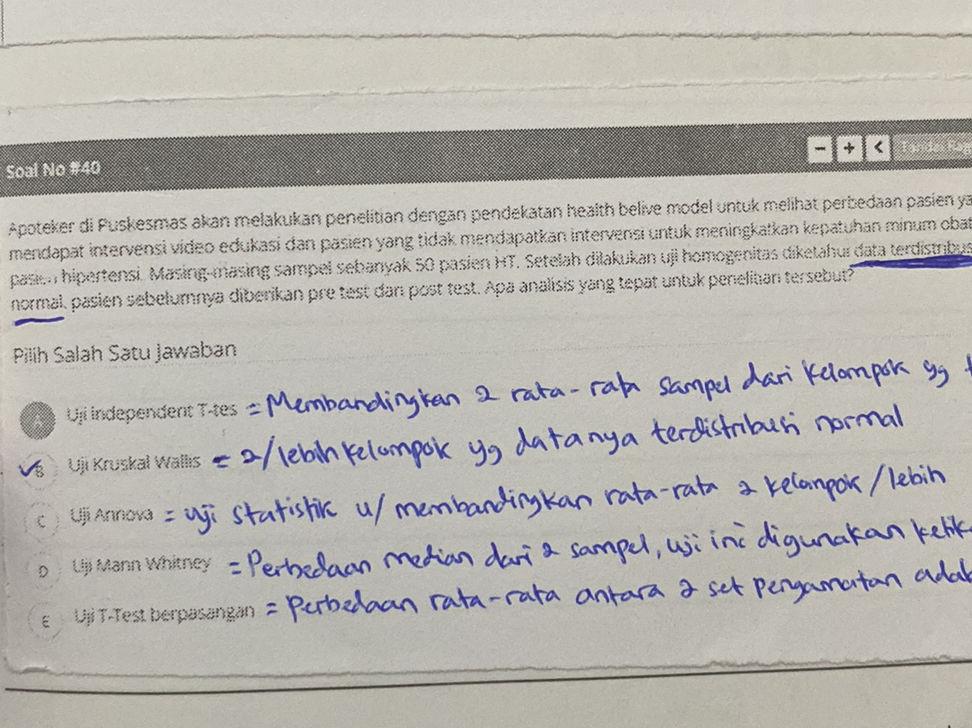 Soal No #40
− + <
Apoteker di Puskesmas akan melakukan penelitian dengan pendekatan health belive model untuk melihat perbedaan pasien ya
mendapat intervensi video edukasi dan pasien yang tidak mendapatkan intervensi untuk meningkatkan kepatuhan minum obat
pasien hipertensi. Masing-masing sampel sebanyak 50 pasien HT. Setelah dilakukan uji homogenitas diketahui data terdistribus
normal, pasien sebelumnya diberikan pre test dan post test. Apa analisis yang tepat untuk penelitian tersebut?
Pilih Salah Satu Jawaban
A Uji independent T-tes = Membandingkan 2 rata-rata sampel dari kelompok yg
B Uji Kruskal Wallis = 2/lebih kelompok yg datanya terdistribusi normal
C Uji Annova = uji statistik u/ membandingkan rata-rata 2 kelompok/lebih
D Uji Mann Whitney = Perbedaan median dari 2 sampel, uji ini digunakan ketik
E Uji T-Test berpasangan = Perbedaan rata-rata antara 2 set pengamatan adal